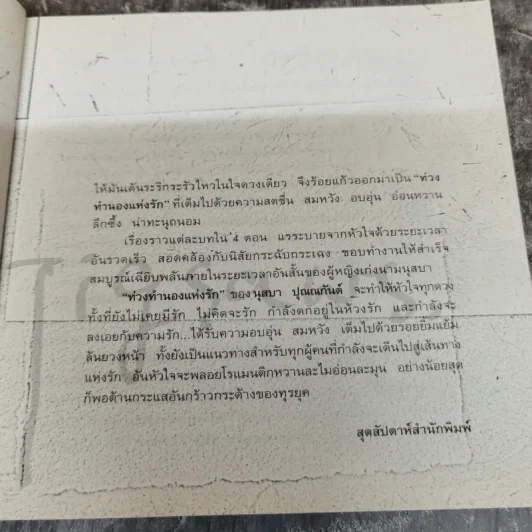 ให้มันเต้นระริกระรัวไหวในใจดวงเดียว จึงร้อยแก้วออกมาเป็น "ท่วง
ทำนองแห่งรัก" ที่เต็มไปด้วยความสดชื่น สมหวัง อบอุ่น อ่อนหวาน
ลึกซึ้ง น่าทะนุถนอม
เรื่องราวแต่ละบทใน 4 ตอน แรระบายจากหัวใจด้วยระยะเวลา
อันรวดเร็ว สอดคล้องกับนิสัยกระฉับกระเฉง ชอบทำงานให้สำเร็จ
สมบูรณ์เฉียบพลันภายในระยะเวลาอันสั้นของผู้หญิงเก่งนามนุสบา
"ท่วงทำนองแห่งรัก" ของ นุสบา ปุณณกันต์ จะทำให้หัวใจทุกดวง
ทั้งที่ยังไม่เคยมีรัก ไม่คิดจะรัก กำลังตกอยู่ในห้วงรัก และกำลังจะ
ลงเอยกับความรัก...ได้รับความอบอุ่น สมหวัง เต็มไปด้วยรอยยิ้มแย้ม
ล้นดวงหน้า ทั้งยังเป็นแนวทางสำหรับทุกผู้คนที่กำลังจะเดินไปสู่เส้นทาง
แห่งรัก อันหัวใจจะพลอยโรแมนติกหวานละไมอ่อนละมุน อย่างน้อยสุด
ก็พอต้านกระแสอันกร้าวกระด้างของทุรยุค
สุดสัปดาห์สำนักพิมพ์